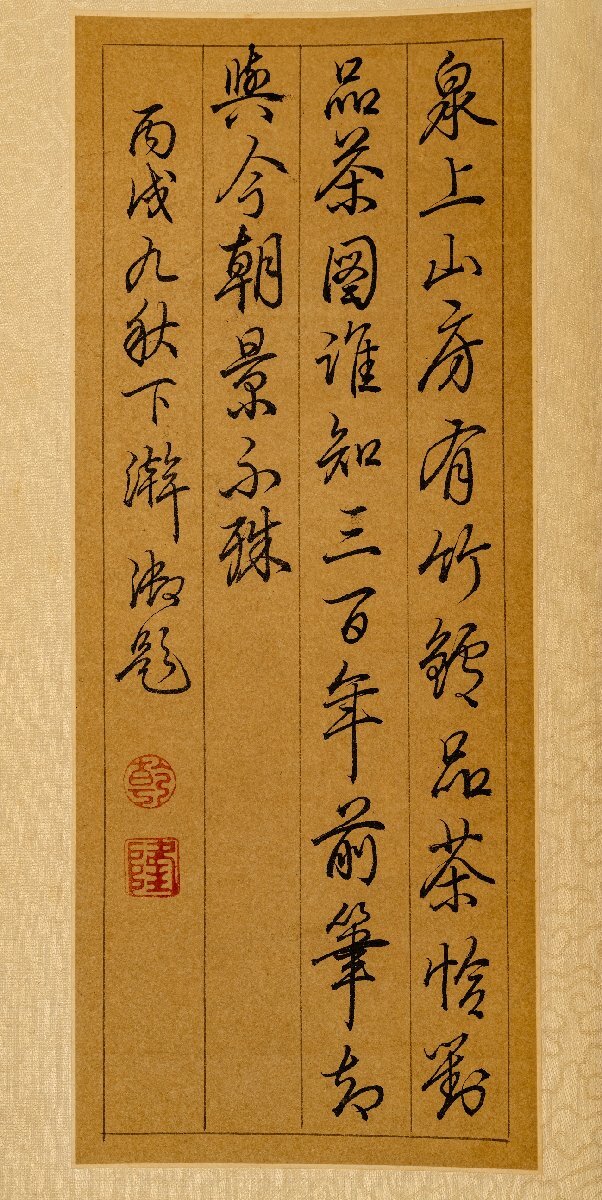 泉上山房有竹鑪品茶恰對
品茶圖誰知三百年前筆却
與今朝景不殊
丙戌九秋下澣御題
乾
隆